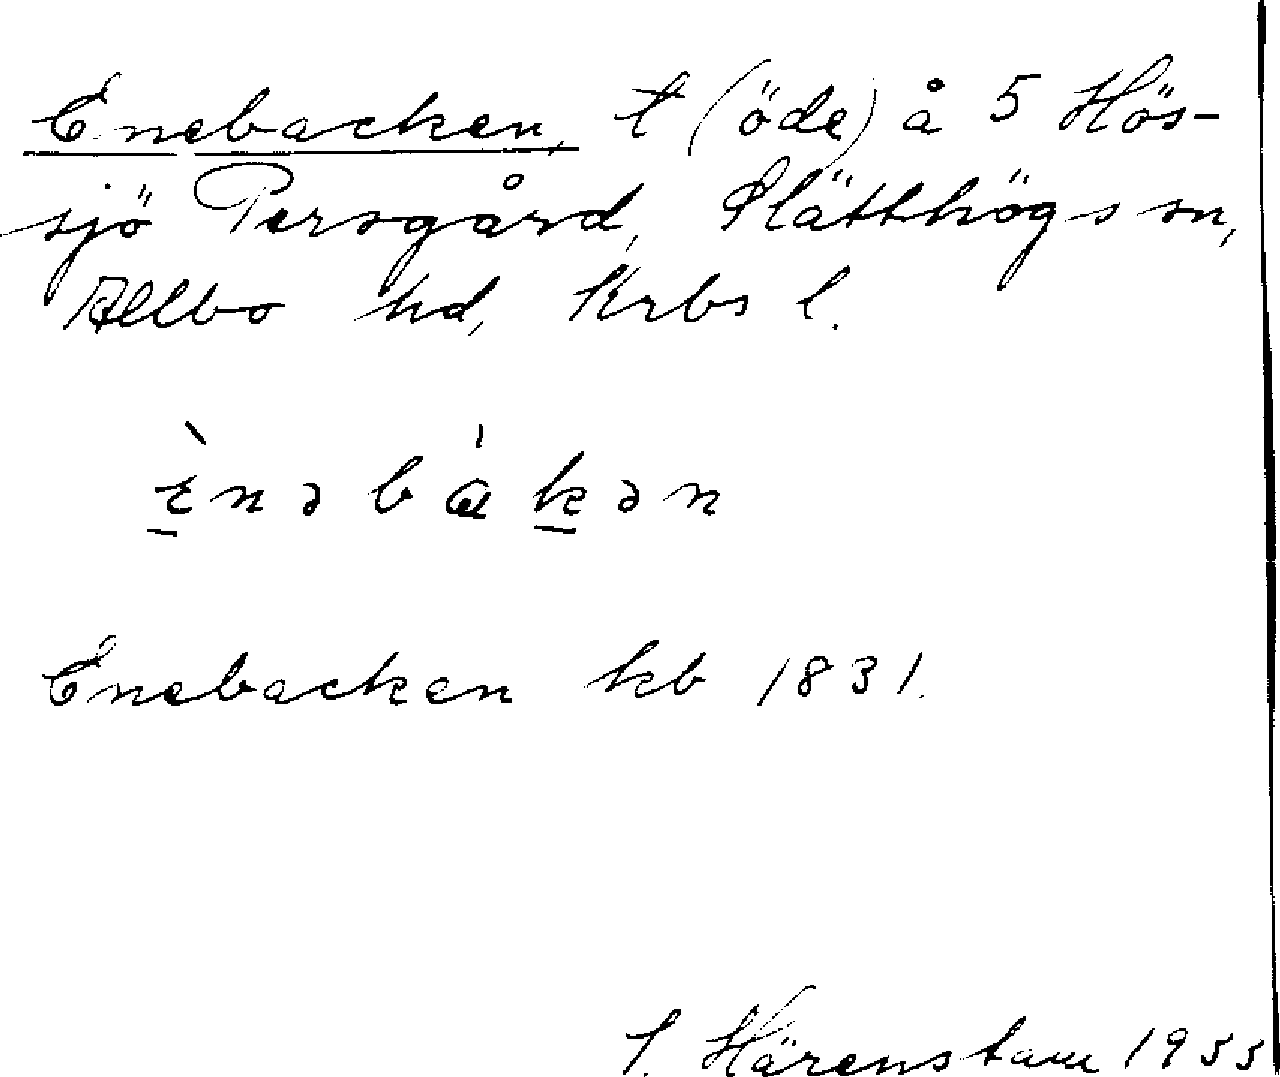 Enebacken, t (öde) å 5 Hös-
sjö Persgård, Slätthögs sn,
Allbo hd, Krbs l.
ènəbákən
Enebacken kb 1831.
J. Härenstam 1955